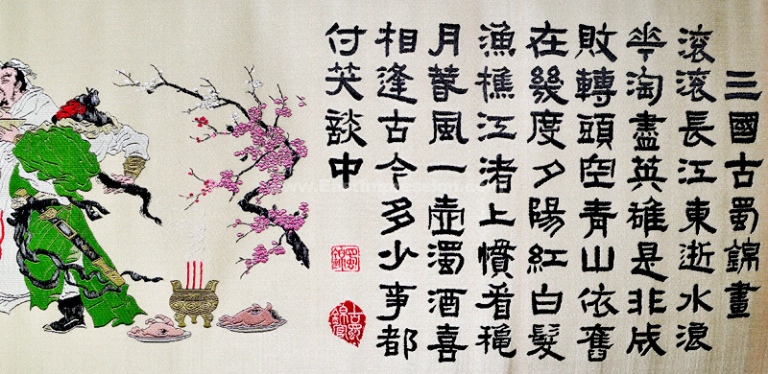 三國古蜀錦畫
滾滾長江東逝水浪
花淘盡英雄是非成
敗轉頭空青山依舊
在幾度夕陽紅白髮
漁樵江渚上慣看穐
月春風一壺濁酒喜
相逢古今多少事都
付笑談中
蜀錦
古蜀錦官